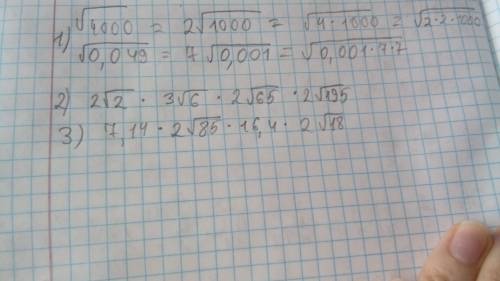 1) √4000 = 2√1000 = √4·1000 = √2·2·1000
√0,049 = 7√0,001 = √0,001·7·7
2) 2√2 · 3√6 · 2√65 · 2√195
3) 7,14 · 2√85 · 16,4 · 2√18